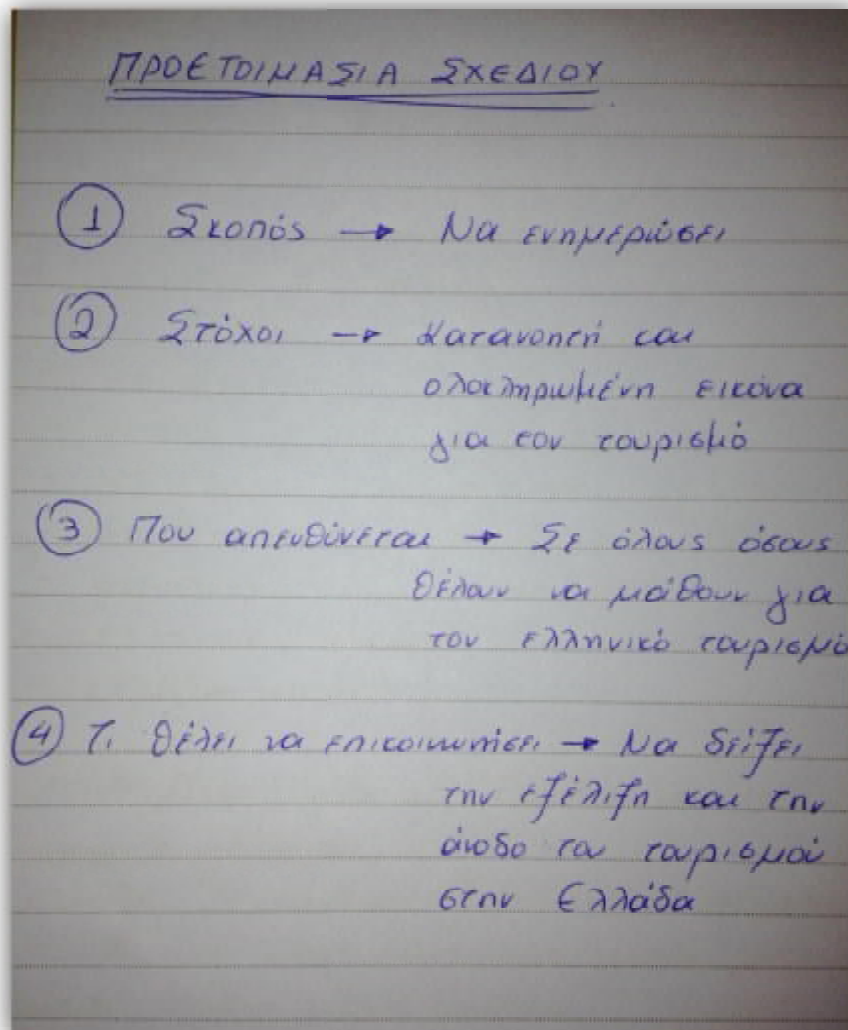 ΠΡΟΕΤΟΙΜΑΣΙΑ ΣΧΕΔΙΟΥ
① Σκοπός → Να ενημερώσει
② Στόχοι → Κατανοητή και
ολοκληρωμένη εικόνα
για τον τουρισμό
③ Που απευθύνεται → Σε όλους όσους
θέλουν να μάθουν για
τον ελληνικό τουρισμό
④ Τι θέλει να επικοινωνήσει → Να δείξει
την εξέλιξη και την
άνοδο του τουρισμού
στην Ελλάδα